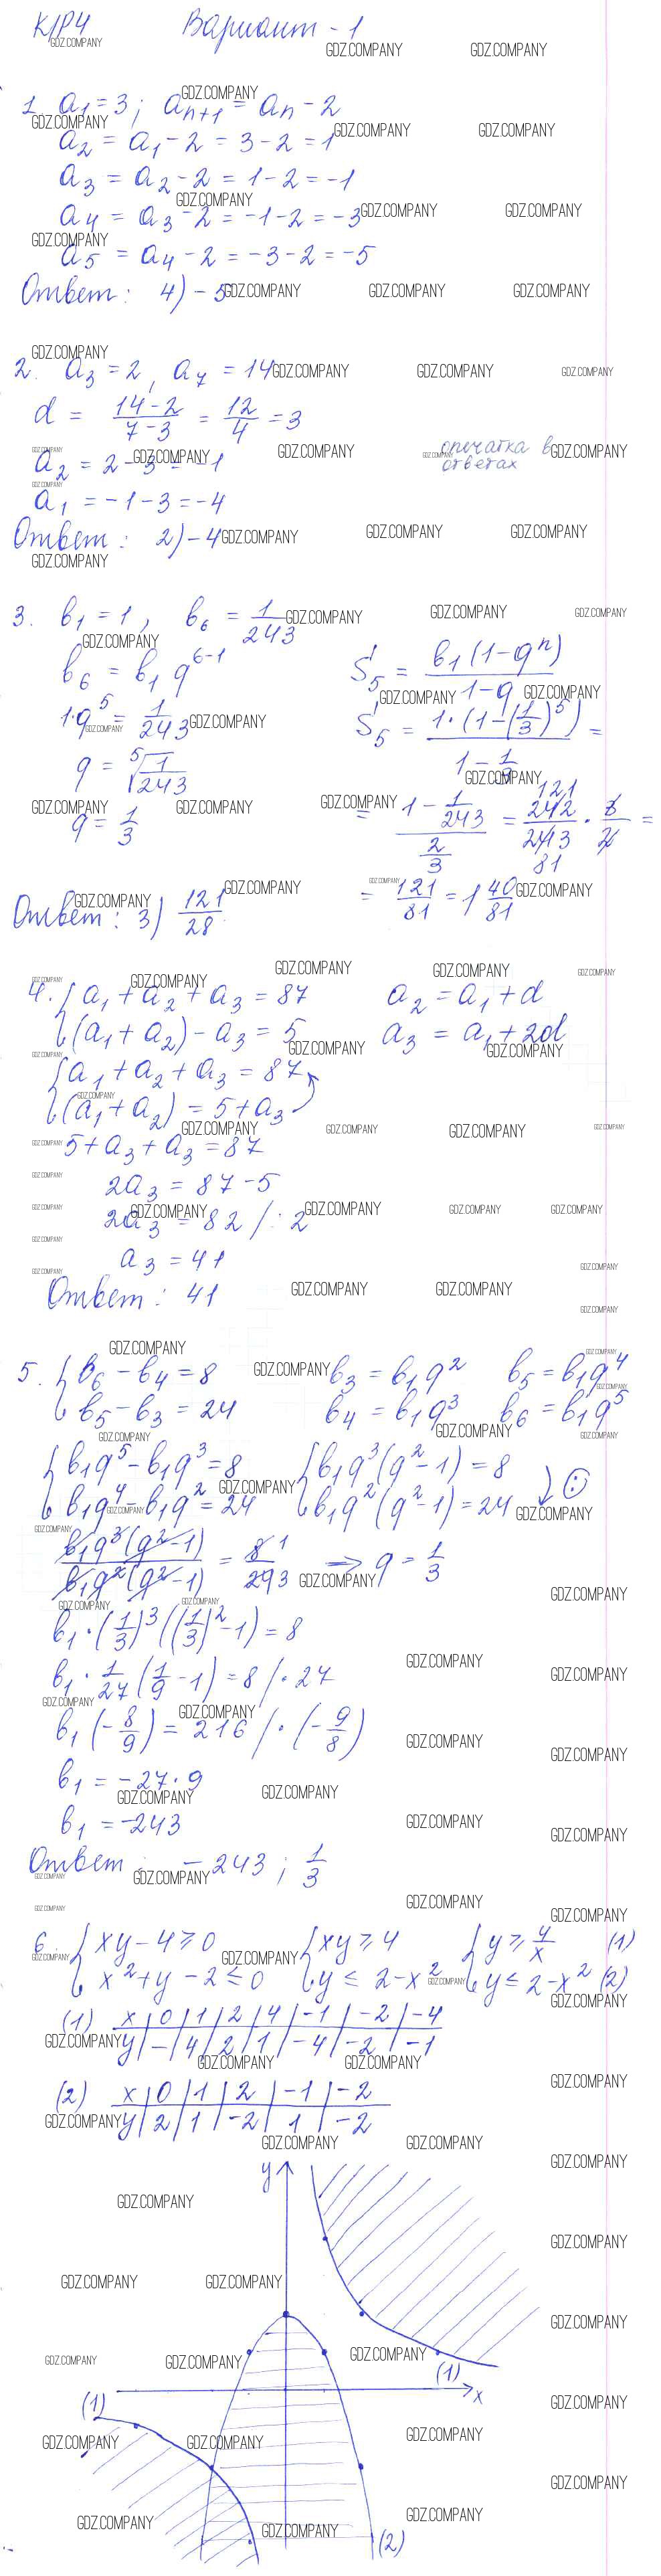 К/Р4 Вариант - 1
1. a₁ = 3; aₙ₊₁ = aₙ - 2
a₂ = a₁ - 2 = 3 - 2 = 1
a₃ = a₂ - 2 = 1 - 2 = -1
a₄ = a₃ - 2 = -1 - 2 = -3
a₅ = a₄ - 2 = -3 - 2 = -5
Ответ: 4) -5
2. a₃ = 2, a₇ = 14
d = (14-2)/(7-3) = 12/4 = 3
опечатка в
ответах
a₂ = 2 - 3 = -1
a₁ = -1 - 3 = -4
Ответ: 2) -4
3. b₁ = 1, b₆ = 1/243
b₆ = b₁ q⁶⁻¹
1·q⁵ = 1/243
q = ⁵√(1/243)
q = 1/3
S₅ = b₁(1-qⁿ)/(1-q)
S₅ = 1·(1-(1/3)⁵)/(1-1/3) =
= (1 - 1/243)/(2/3) = 242/243 · 3/2 = 121 81
= 121/81 = 1 40/81
Ответ: 3) 121/28
4. { a₁ + a₂ + a₃ = 87 a₂ = a₁ + d
(a₁ + a₂) - a₃ = 5 a₃ = a₁ + 2d
{ a₁ + a₂ + a₃ = 87
(a₁ + a₂) = 5 + a₃
5 + a₃ + a₃ = 87
2a₃ = 87 - 5
2a₃ = 82 /: 2
a₃ = 41
Ответ: 41
5. { b₆ - b₄ = 8 b₃ = b₁q² b₅ = b₁q⁴
b₅ - b₃ = 24 b₄ = b₁q³ b₆ = b₁q⁵
{ b₁q⁵ - b₁q³ = 8 { b₁q³(q² - 1) = 8
b₁q⁴ - b₁q² = 24 b₁q²(q² - 1) = 24 (:)
b₁q³(q²-1)/b₁q²(q²-1) = 8 1/24 3 => q = 1/3
b₁·(1/3)³((1/3)² - 1) = 8
b₁·1/27(1/9 - 1) = 8 /·27
b₁(-8/9) = 216 /·(-9/8)
b₁ = -27·9
b₁ = -243
Ответ: -243; 1/3
6. { xy - 4 ≥ 0 { xy ≥ 4 { y ≥ 4/x (1)
x² + y - 2 ≤ 0 y ≤ 2 - x² y ≤ 2 - x² (2)
(1) x | 0 | 1 | 2 | 4 | -1 | -2 | -4
y | - | 4 | 2 | 1 | -4 | -2 | -1
(2) x | 0 | 1 | 2 | -1 | -2
y | 2 | 1 | -2 | 1 | -2
y
(1)
x
(1)
(2)
GDZ.COMPANY